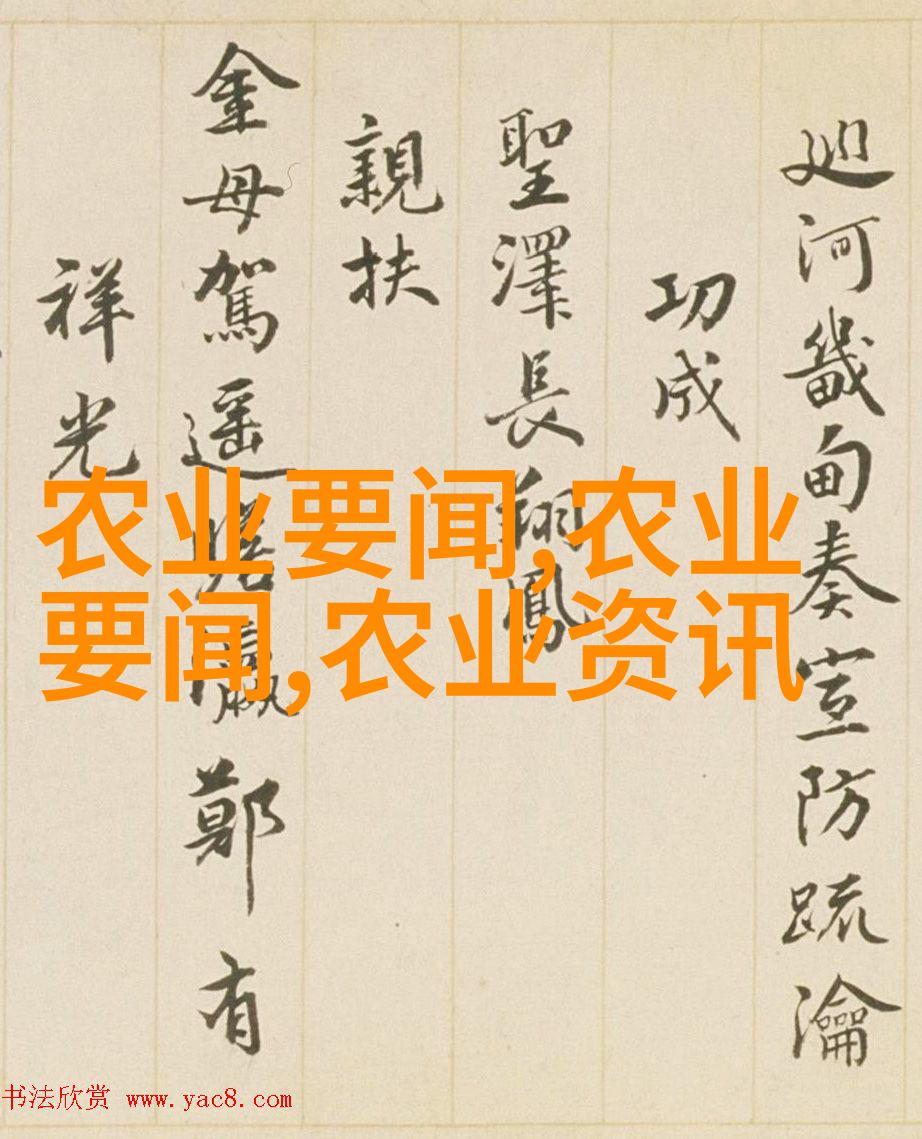 廵河畿甸奏宣防疏瀹
功成
聖澤長翔鳳
親扶
金母駕遥鄭有
祥光
农业要闻,农业
要闻,农业资讯
书法欣赏 www.yac8.com